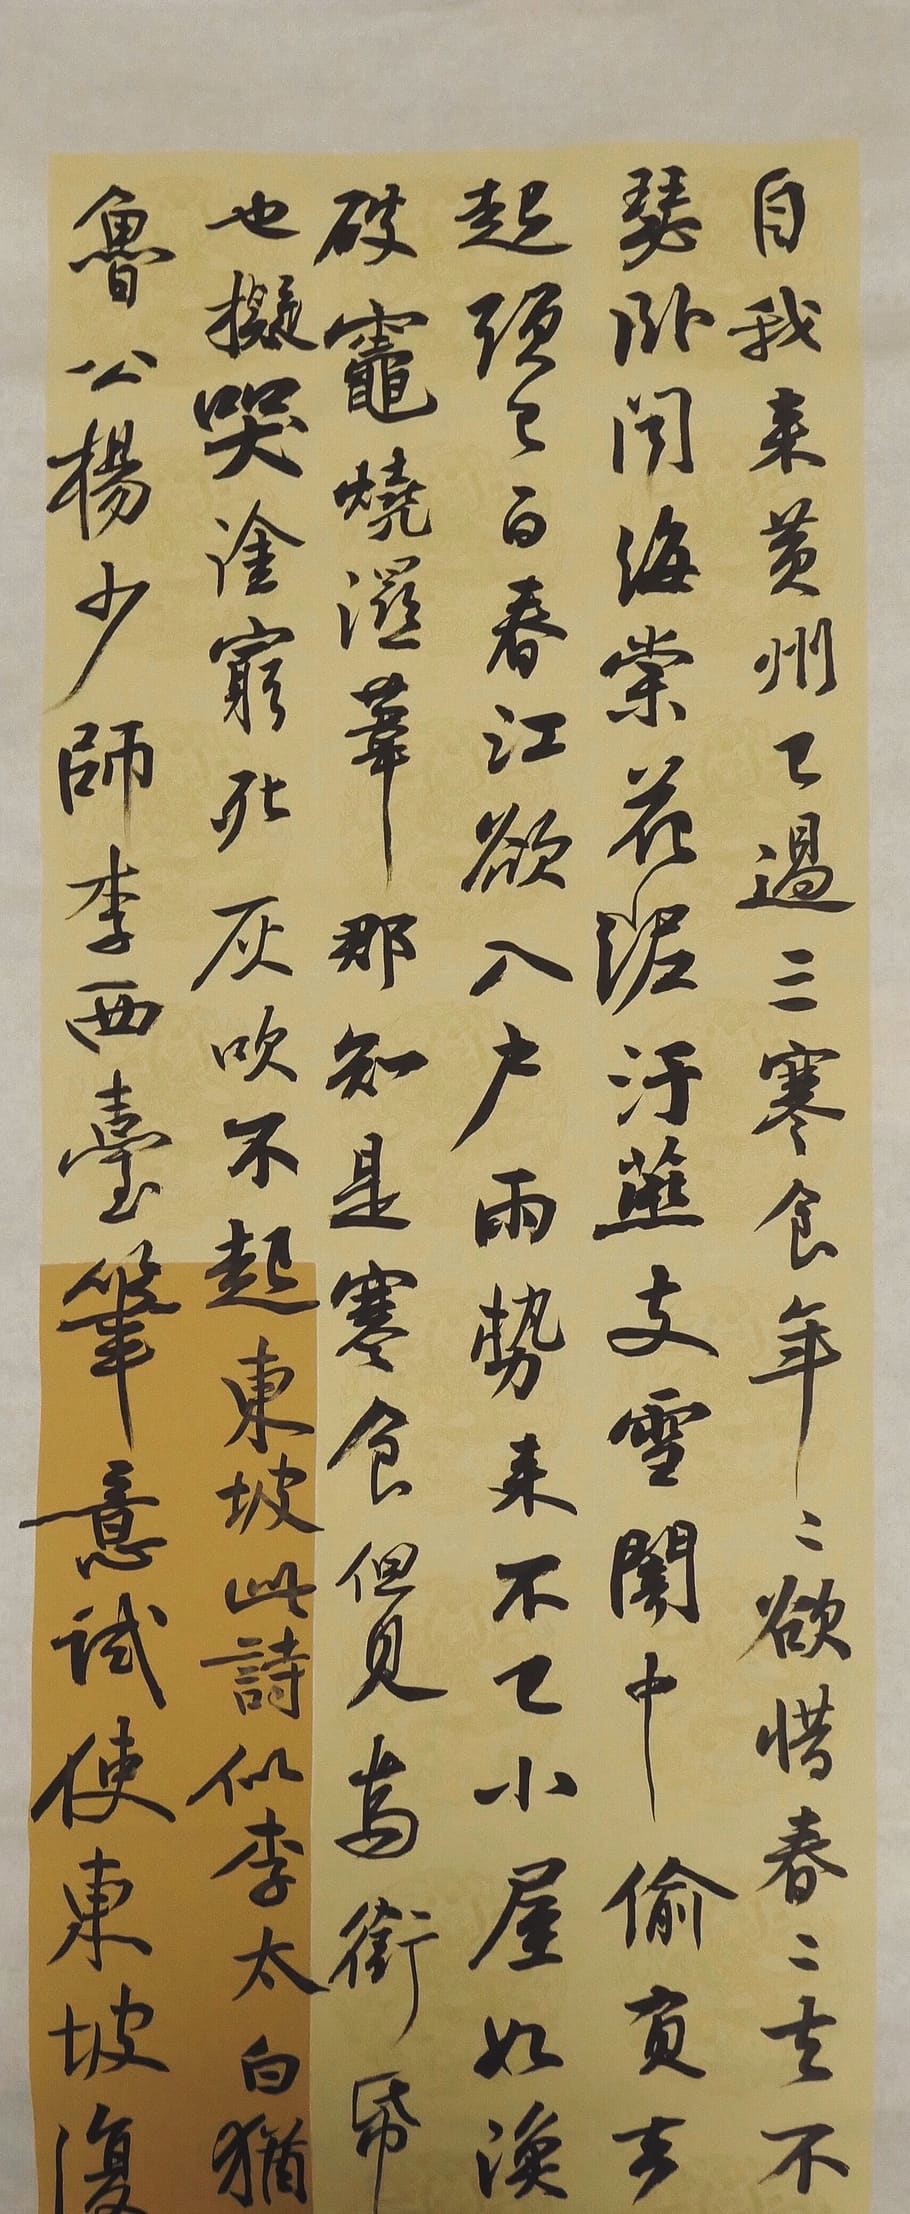 自我来黄州已過三寒食年〻欲惜春〻去不
瑟卧闻海棠花泥汙燕支雪闇中偷負去
起頭已白春江欲入户雨势来不已小屋如漁
破竈燒濕葦那知是寒食但見烏銜帋
也擬哭塗窮死灰吹不起東坡此詩似李太白猶
魯公楊少師李西臺筆意試使東坡復